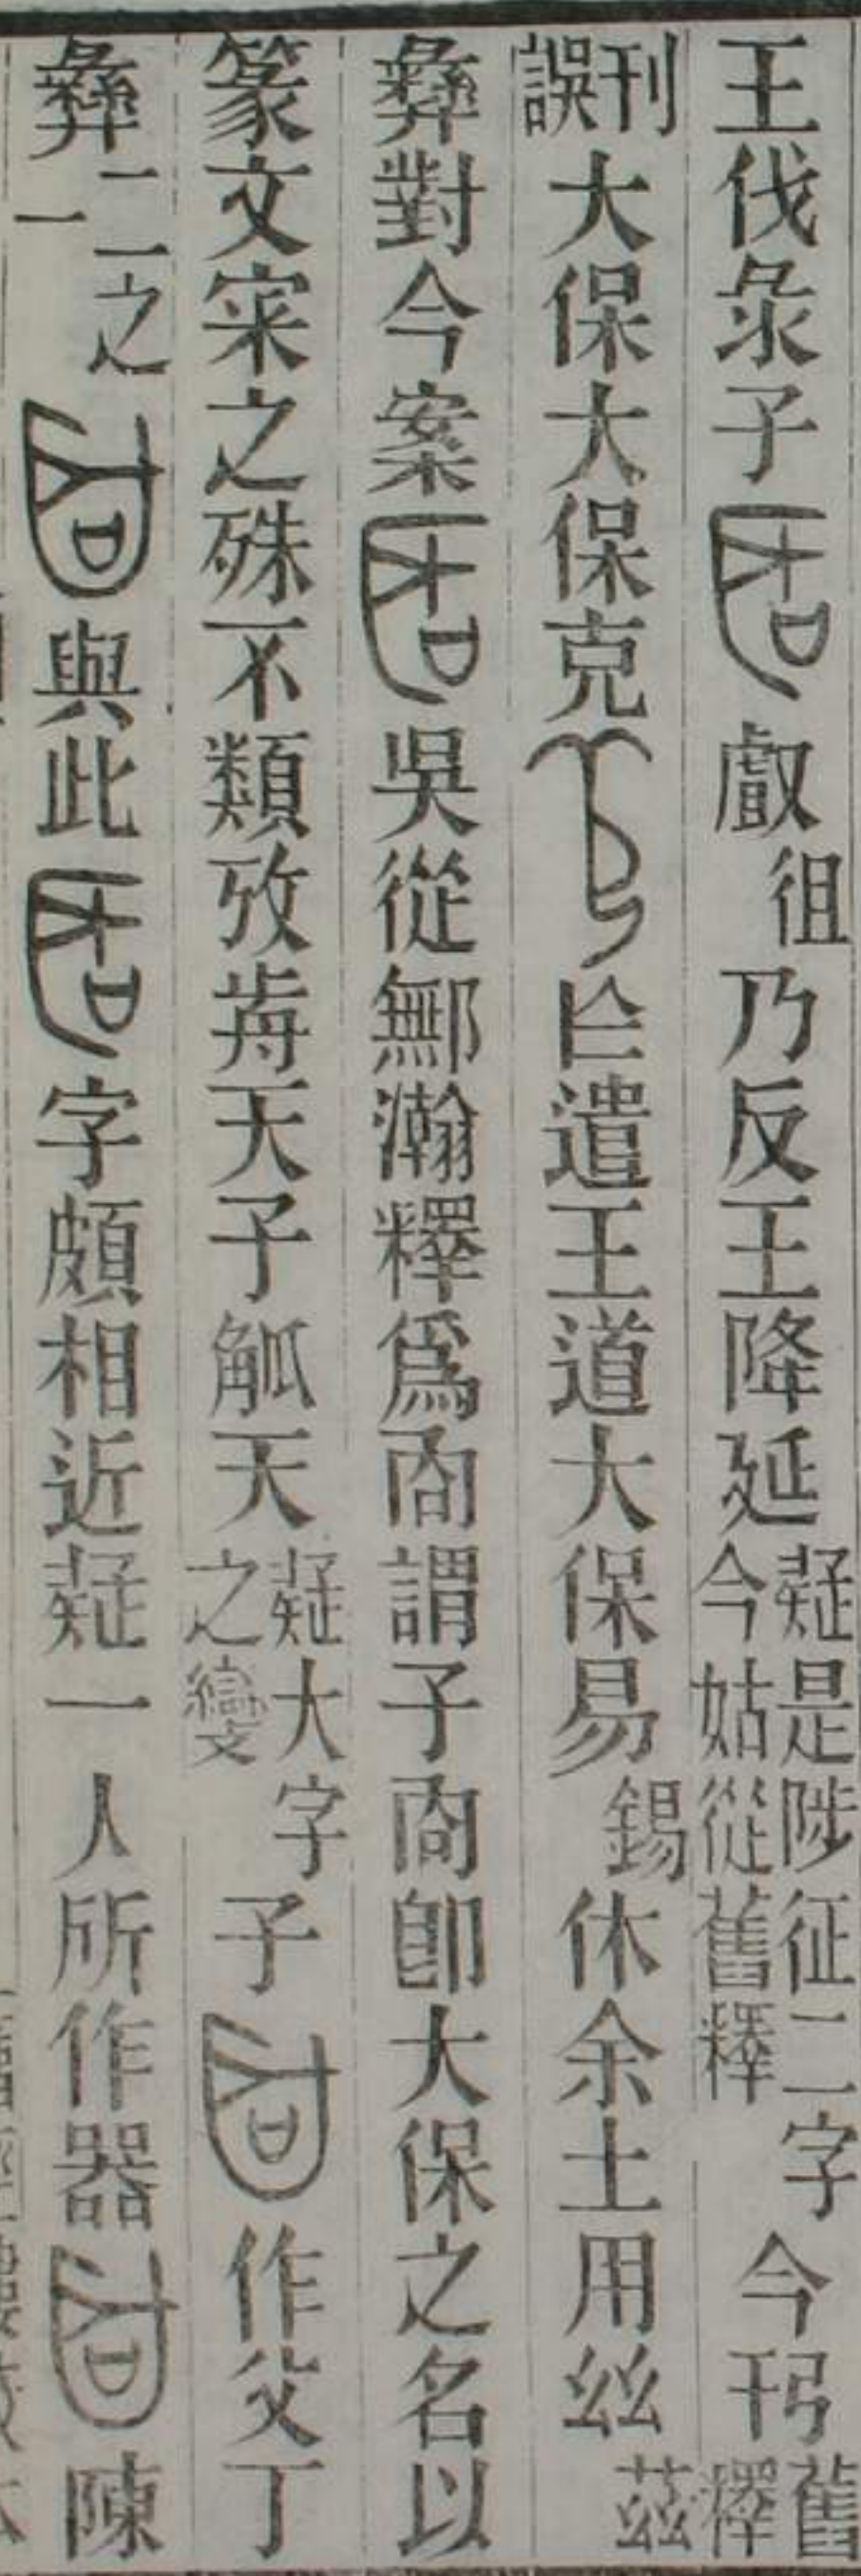 王伐彔子𠭯徂乃反王降延疑是陟征二字今姑從舊釋今舊釋
刊誤大保大保克遣王道大保易錫休余土用𢆶茲
彝對今案吳從鄦瀚釋爲商謂子商卽大保之名以
篆文宷之殊不類攷歬天子觚天疑大字之變子作父丁
彝二之一與此字頗相近疑一人所作器陳